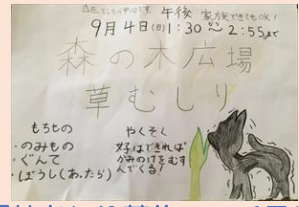 午後 家族できてもOK!
9月4日(日)1:30から2:55まで
森の木広場
草むしり
もちもの
・のみもの
・ぐんて
・ぼうし(あ,たら)
やくそく
女子はできれば
かみのけをむす
んでくる!